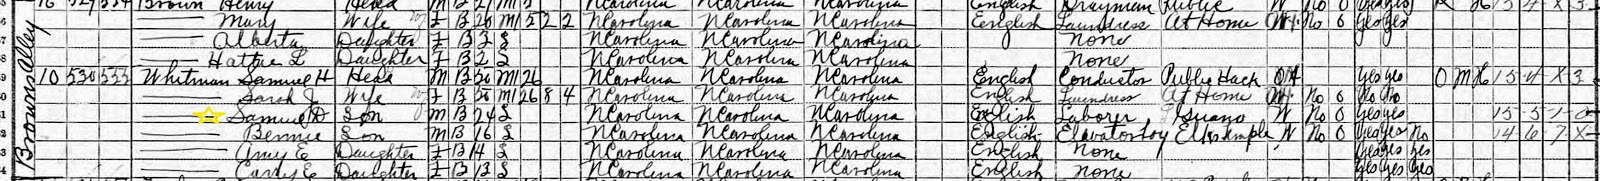 Brown Henry Head M B 27 M1 5 NCarolina NCarolina NCarolina English Drayman Public W No 0 yes yes
Mary Wife F B 26 M1 5 2 2 NCarolina NCarolina NCarolina English Laundress At Home No 0 yes yes
Alberta Daughter F B 3 S NCarolina NCarolina NCarolina none
Hattie L Daughter F B 2 S NCarolina NCarolina NCarolina none
Brownsalley
10 530 533 Whitman Samuel H Head M B 50 M1 26 NCarolina NCarolina NCarolina English Conductor Public Hack OA yes yes O M H 15-4-X-3
Sarah J Wife F B 50 M1 26 8 4 NCarolina NCarolina NCarolina English Laundress At Home No 0 No No
Samuel D Son M B 24 S NCarolina NCarolina NCarolina English Laborer Guano W No 0 yes yes 15-5-1-0
Bennie Son M B 16 S NCarolina NCarolina NCarolina English Elavator boy Elks Temple W No 0 yes yes No 14-6-7-X
Amy E Daughter F B 14 S NCarolina NCarolina NCarolina English none yes yes yes
Daughter F B 13 S NCarolina NCarolina NCarolina English none yes yes yes